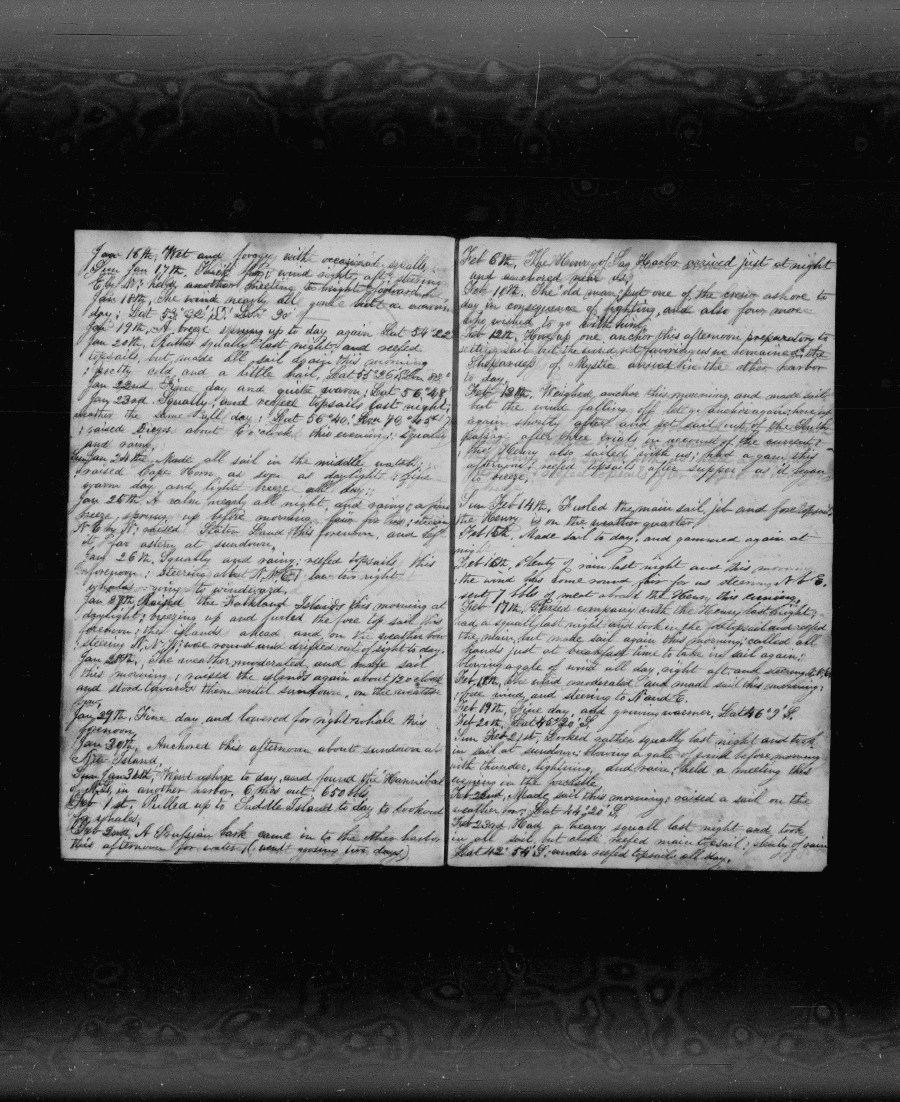 Jan 16th, Wet and foggy with occasional squalls,
Sun Jan 17th, Thick fog; wind right aft; steering
E by N; held another meeting to night forward
Jan 18th, The wind nearly all gone but a warm
day; Lat 53° 32' S;
Jan 19th, A breeze sprung up to day again. Lat 54° 22'
Jan 20th, Rather squally last night, and reefed
topsails, but made all sail again this morning
; pretty cold and a little hail, Lat 55° 26'
Jan 22nd, Fine day and quite warm; Lat 56° 48'
Jan 23rd Squally; and reefed topsails last night;
weather the same all day; Lat 56° 40'.
; raised Diego about 6 o'clock this evening; Squally
and rainy.
Sun Jan 24th, Made all sail in the middle watch;
raised Cape Horn as soon as daylight; fine
warm day and light breeze all day;
Jan 25th A calm nearly all night, and rainy; a fine
breeze sprung up before morning, fair for us; steering
N E by N; raised Staten Land this forenoon, and left
it far astern at sundown.
Jan 26th, Squally and rainy; reefed topsails this
afternoon; Steering about N.N.E; saw two right
whales going to windward.
Jan 27th, Raised the Falkland Islands this morning at
daylight; breezing up and furled the fore top sail this
forenoon; the islands ahead and on the weather bow
steering N.N.W; wore round and drifted out of sight to day.
Jan 28th, The weather moderated, and made sail
this morning; raised the islands again about 12 o'clock
and stood towards them until sundown, on the weather
bow.
Jan 29th, Fine day and lowered for right whale this
forenoon,
Jan 30th, Anchored this afternoon about sundown at
New Island,
Sun Jan 31st, Went ashore to day, and found the Hannibal
of in another harbor, 6 mos out 650 bbls,
Feb 1st. Pulled up to Saddle Island to day to look out
for whales;
Feb 2nd, A Russian bark came in to the other harbor
this afternoon for water, (went going in two days)
Feb 6th, The Henry of Sag Harbor arrived just at night
and anchored near us,
Feb 11th, The old man put one of the crew ashore to
day in consequence of fighting, and also four more
who wished to go with him,
Feb 12th, Hove up one anchor this afternoon preparatory to
setting sail but the wind not favoring us we remained; the
Shepardess of Mystic arrived in the other harbor
to day.
Feb 13th, Weighed anchor this morning, and made sail
but the wind falling off let go anchor again; hove up
again shortly after and got sail out of the South
passage after three trials on account of the current;
; the Henry also sailed with us; had a gam this
afternoon; reefed topsails after supper as it began
to breeze,
Sun Feb 14th, Furled the main sail, jib and fore topsail
the Henry is on the weather quarter,
Feb 15th, Made sail to day, and gammed again at
night
Feb 16th, Plenty of rain last night and this morning
; the wind has come round fair for us steering N b E.
sent 7 bbls of meat aboard the Henry this evening,
Feb 17th, Parted company with the Henry last night;
had a squall last night and took in the fore topsail and reefed
the main, but made sail again this morning; called all
hands just at breakfast time to take in sail again;
blowing a gale of wind all day right aft and steering N.N.E.
Feb 18th, the wind moderated and made sail this morning;
free wind, and steering to N and E.
Feb 19th, Fine day, and growing warmer, Lat 46° 9' S.
Feb 20th, Lat 45° 20' S
Sun Feb 21st, Looked rather squally last night and took
in sail at sundown; blowing a gale of wind before morning
with thunder, lightning, and rain; held a meeting this
evening in the forecastle,
Feb 22nd, Made sail this morning; raised a sail on the
weather bow; Lat 44° 20' S
Feb 23rd Had a heavy squall last night and took
in all sail but close reefed main topsail; plenty of rain
Lat 42° 54' S; under reefed topsails all day.